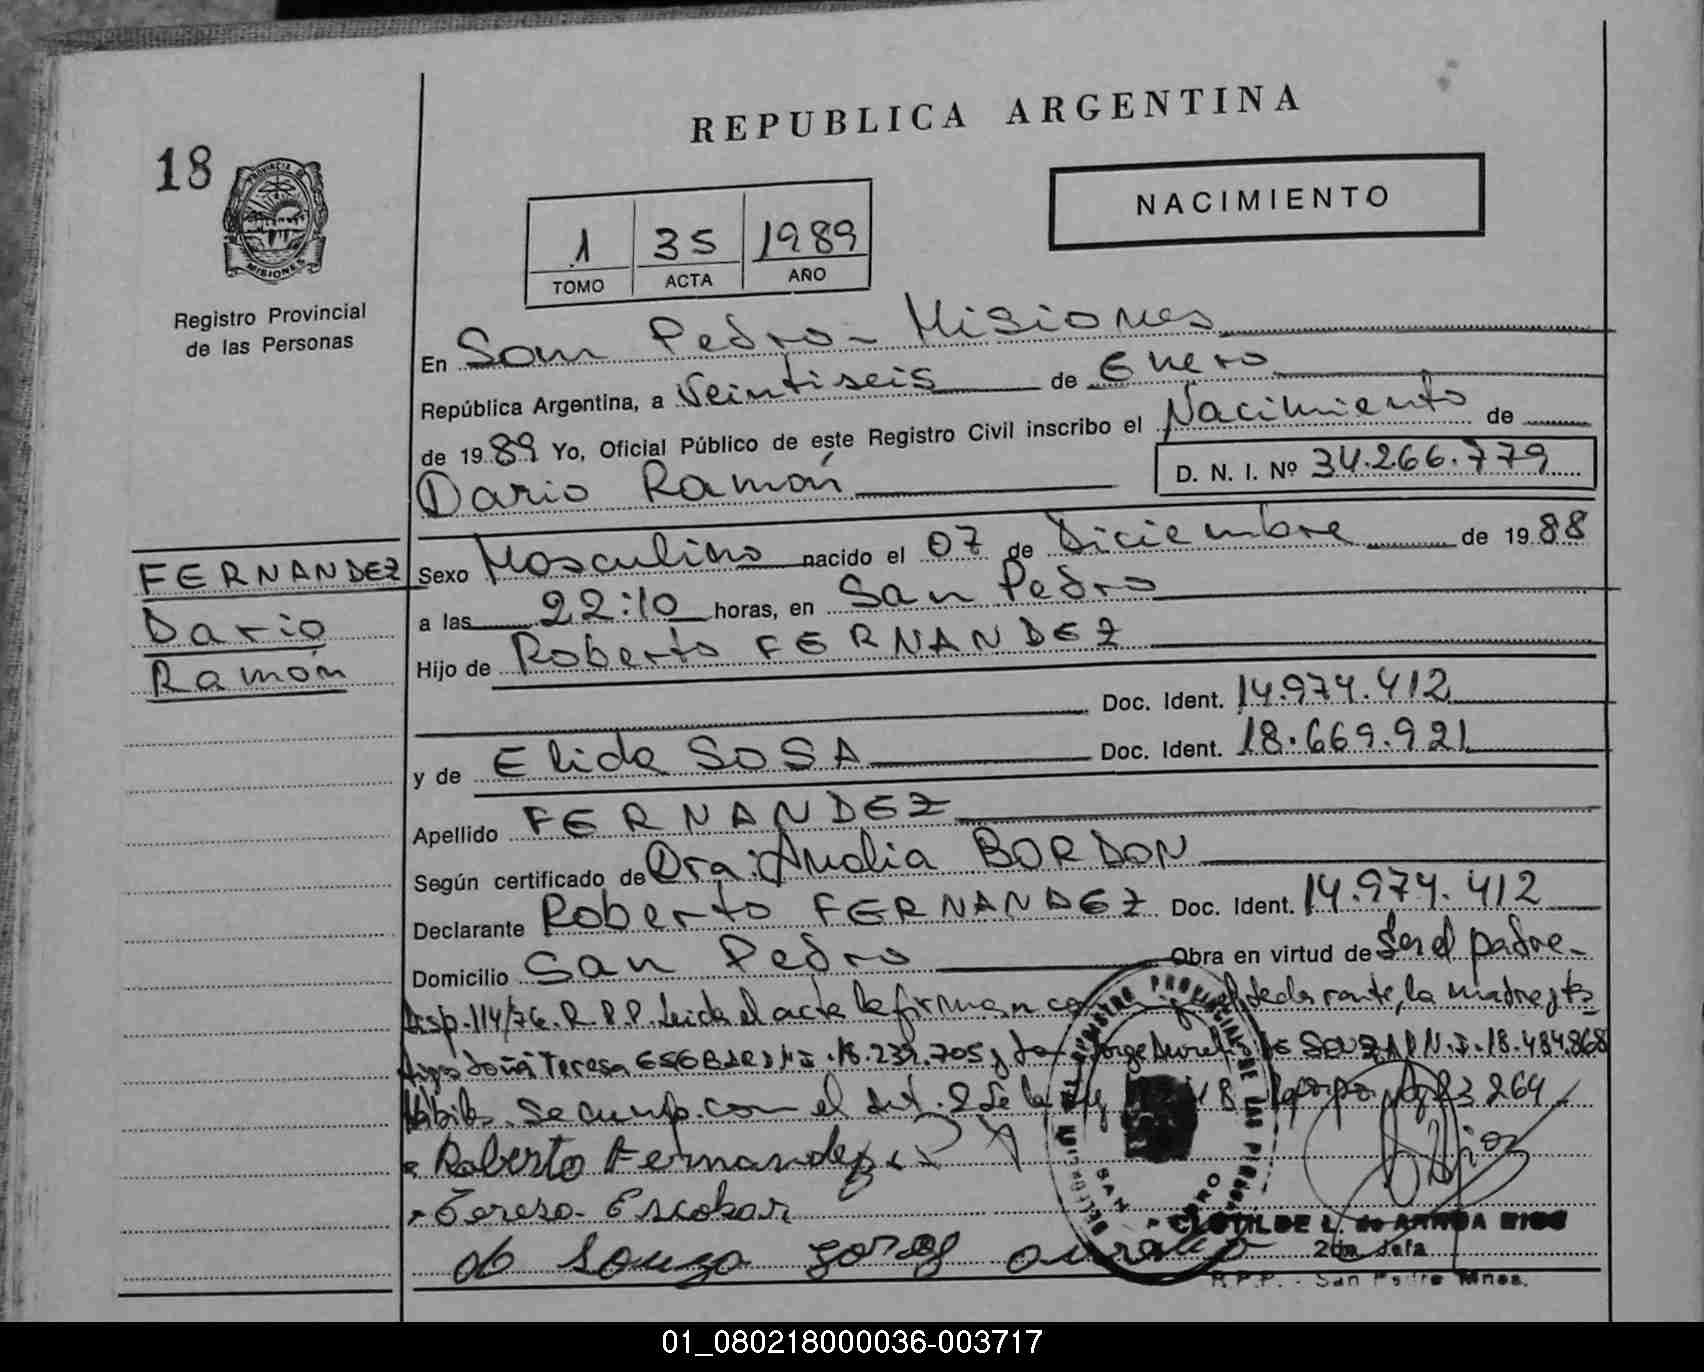 REPUBLICA ARGENTINA
18
PROVINCIA DE
MISIONES
Registro Provincial
de las Personas
NACIMIENTO
1 35 1989
TOMO ACTA AÑO
En San Pedro - Misiones
República Argentina, a Veintiseis de Enero
de 1989 Yo, Oficial Público de este Registro Civil inscribo el Nacimiento de
Dario Ramón
D. N. I. Nº 34.266.779
FERNANDEZ
Dario
Ramón
Sexo Masculino nacido el 07 de Diciembre de 1988
a las 22:10 horas, en San Pedro
Hijo de Roberto FERNANDEZ
Doc. Ident. 14.974.412
y de Elida SOSA Doc. Ident. 18.669.921
Apellido FERNANDEZ
Según certificado de Dra: Amalia BORDON
Declarante Roberto FERNANDEZ Doc. Ident. 14.974.412
Domicilio San Pedro Obra en virtud de Ser el padre-
Disp. 114/76. R.P.P. Leida el acta la firman declarante, la madre y tes
tigos doña Teresa ESCOBAR 18.239.705 y Jorge DE SOUZA D.N.I. 18.484.868
Hábiles. Se cumple con el Art. 2 de la Ley 23264
Roberto Fernandez
Teresa Escobar
de Souza Jorge
REGISTRO PROVINCIAL DE LAS PERSONAS
SAN PEDRO
CLOTILDE L. de ARRUA RIOS
2da Jefa
R.P.P. - San Pedro Mnes.
01_080218000036-003717